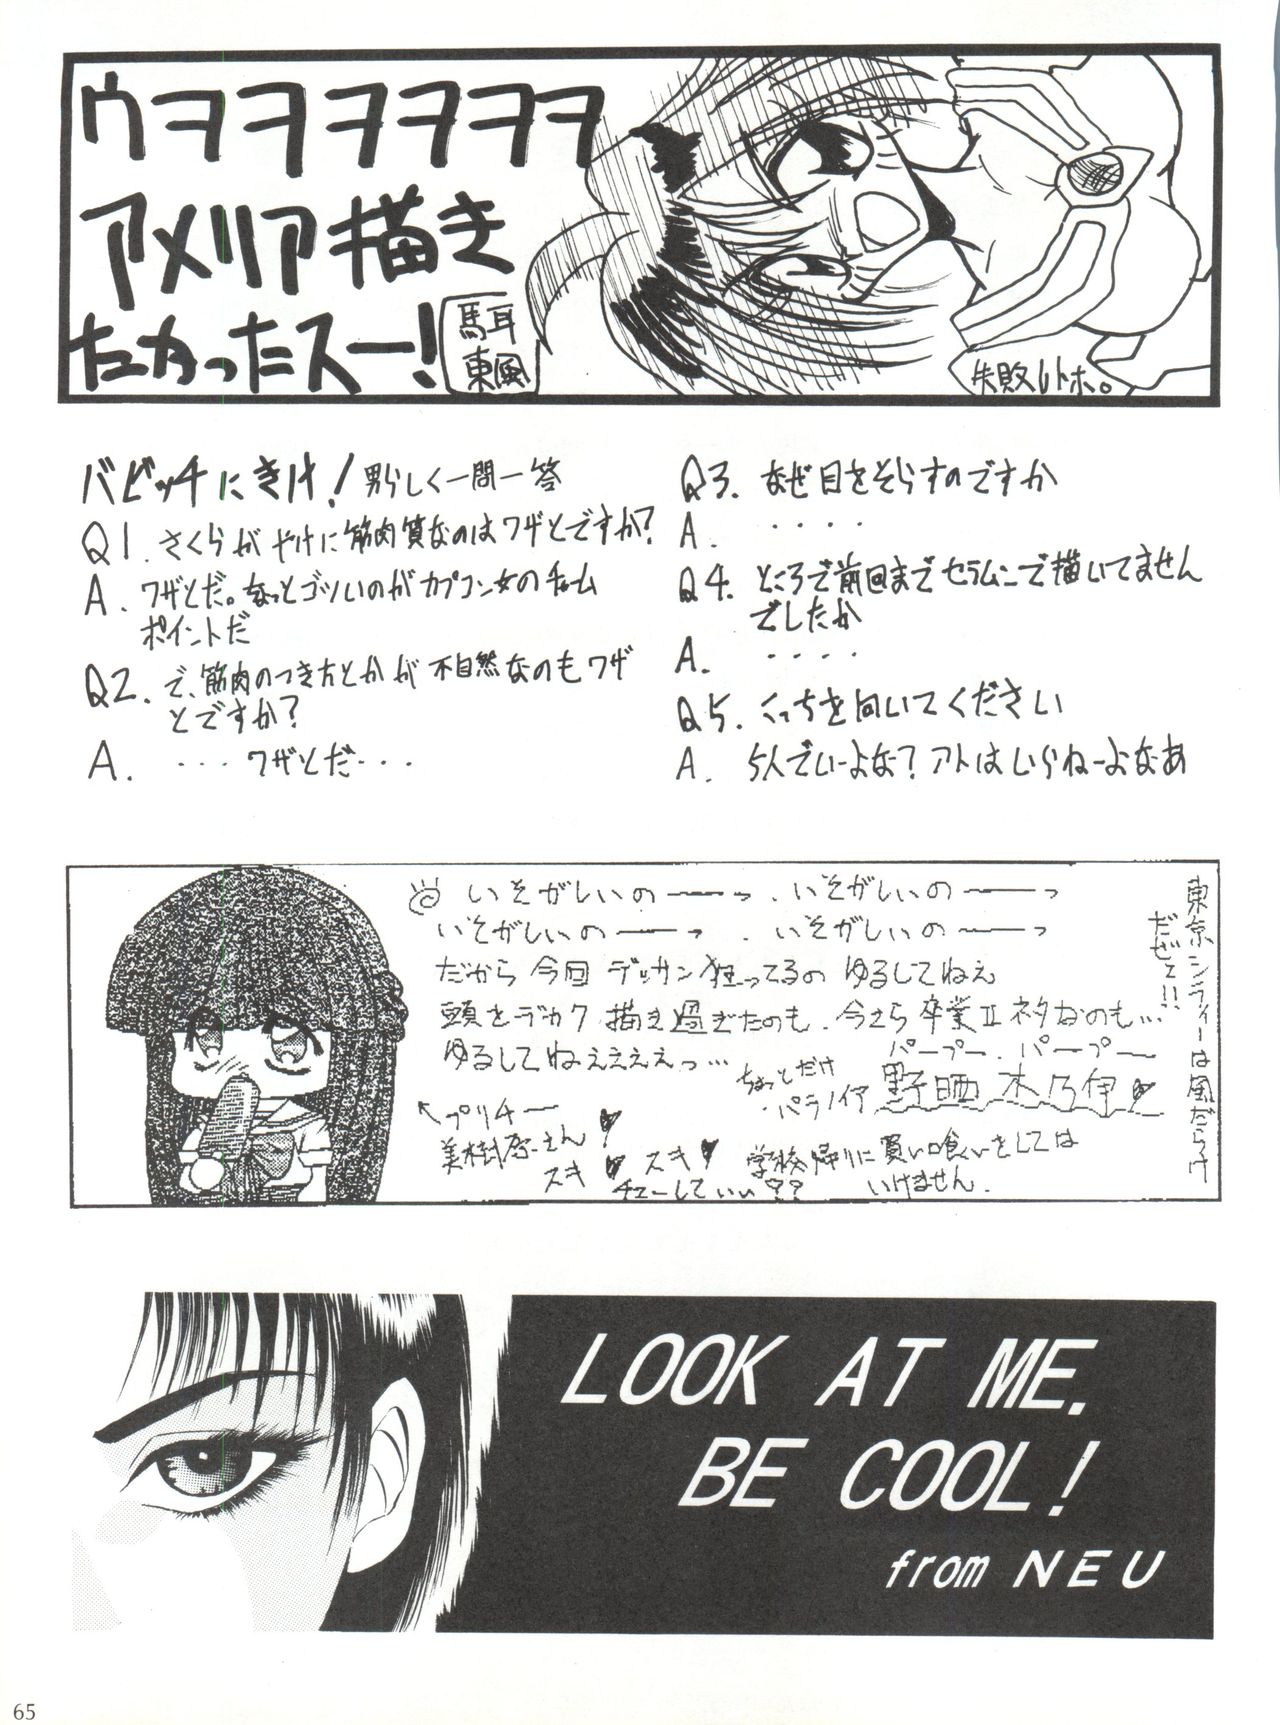 ウヲヲヲヲヲヲ
アメリア描き
たかったスー!
馬耳
東風
失敗レトホ。
バビッチにきけ!男らしく一問一答
Q1. さくらがやけに筋肉質なのはワザとですか?
A. ワザとだ。ちょっとゴツいのがカプコン女のチャーム
ポイントだ
Q2. で、筋肉のつき方とかが不自然なのもワザ
とですか?
A. ・・・ワザとだ・・・
Q3. なぜ目をそらすのですか
A. ・・・・
Q4. ところで前回までセラムンで描いてません
でしたか
A. ・・・・
Q5. こっちを向いてください
A. 5人でいーよな?アトはいらねーよなあ
いそがしいの――っ、いそがしいの――っ
いそがしいの――っ、いそがしいの――っ
だから今回デッサン狂ってるのゆるしてねぇ
頭をデカク描き過ぎたのも、今さら卒業Ⅱネタなのも…
ゆるしてねぇぇぇぇっ…
パープー、パープー
ちょっとだけ
・パラノイア
野晒 木乃伊
東京シンフィーは風だらけ
だぜてい!!
←プリチー
美樹原さん
スキ スキ
チューしていい??
学校帰りに買い喰いをしては
いけません。
LOOK AT ME.
BE COOL!
from NEU
65